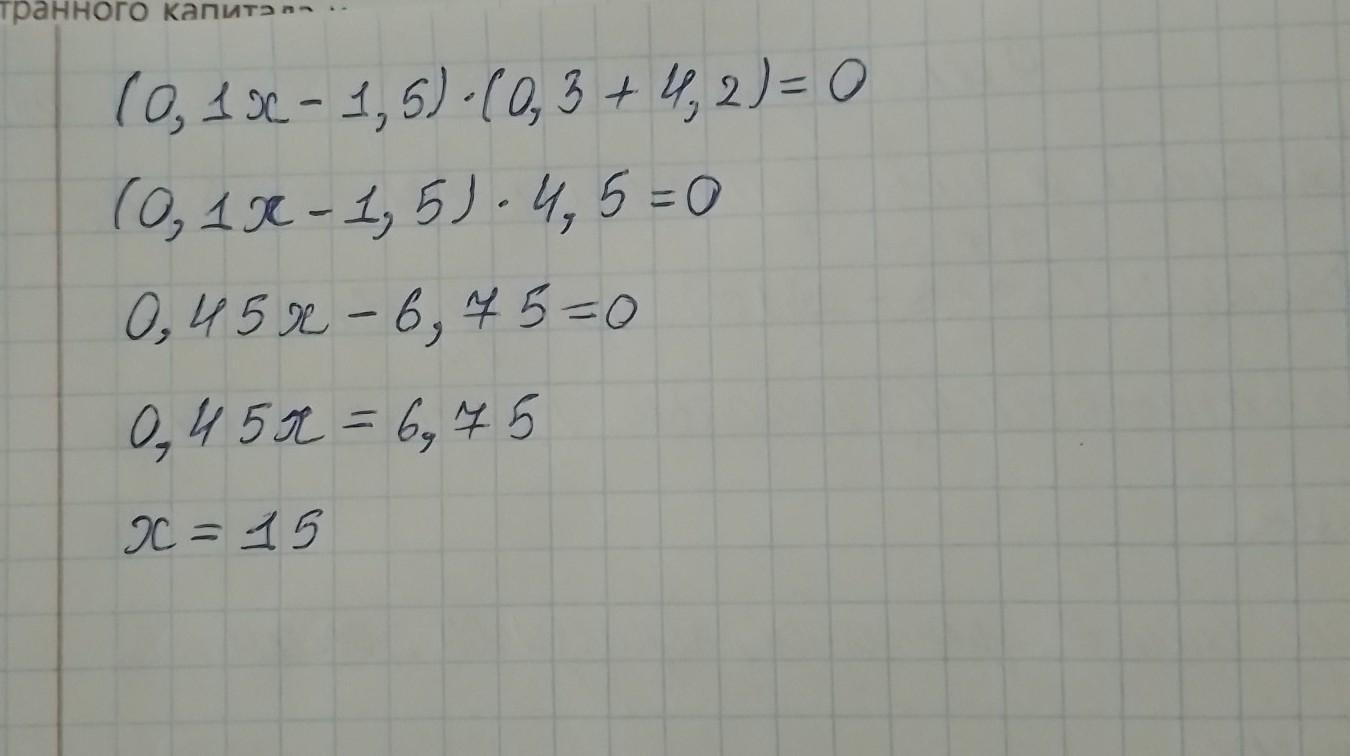 транного капитала
(0,1x - 1,5) · (0,3 + 4,2) = 0
(0,1x - 1,5) · 4,5 = 0
0,45x - 6,75 = 0
0,45x = 6,75
x = 15